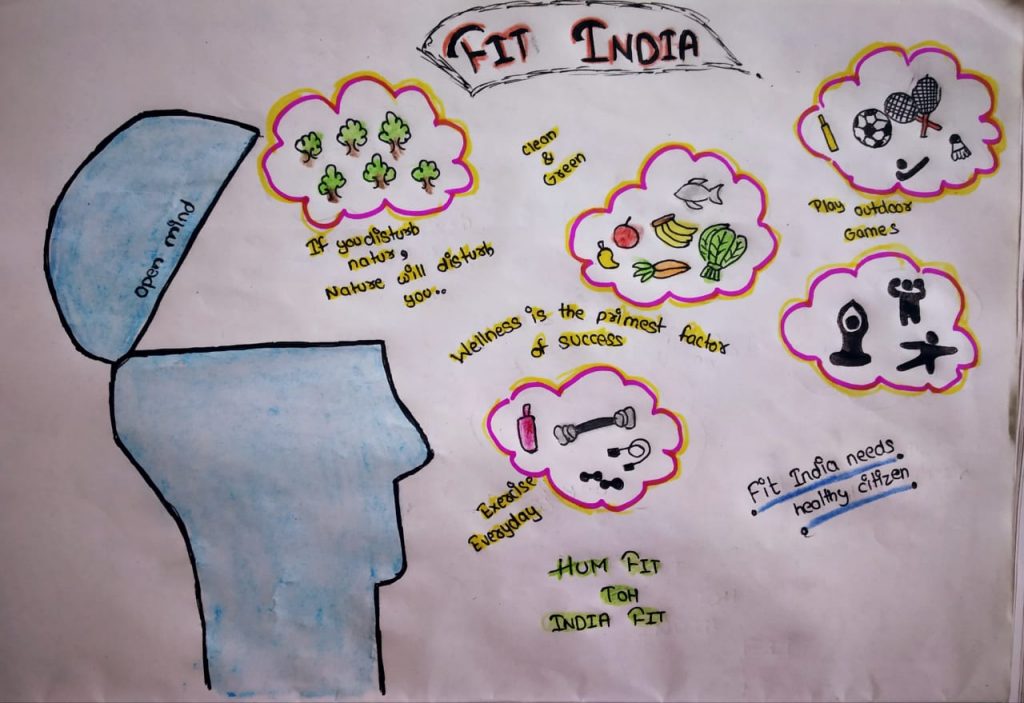 FIT INDIA
open mind
If you disturb
natur,
Nature will disturb
you..
Clean
&
Green
Play outdoor
Games
Wellness is the primest factor
of success
Exercise
Everyday
Fit India needs
healthy citizen
HUM FIT
TOH
INDIA FIT